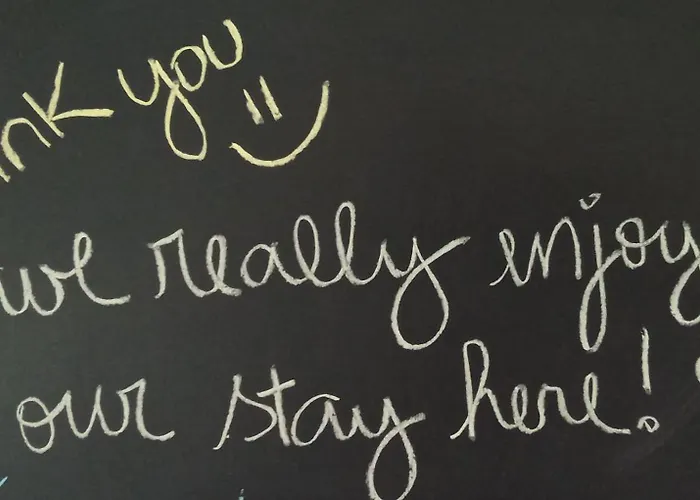 nk you =)
we really enjoy
our stay here!